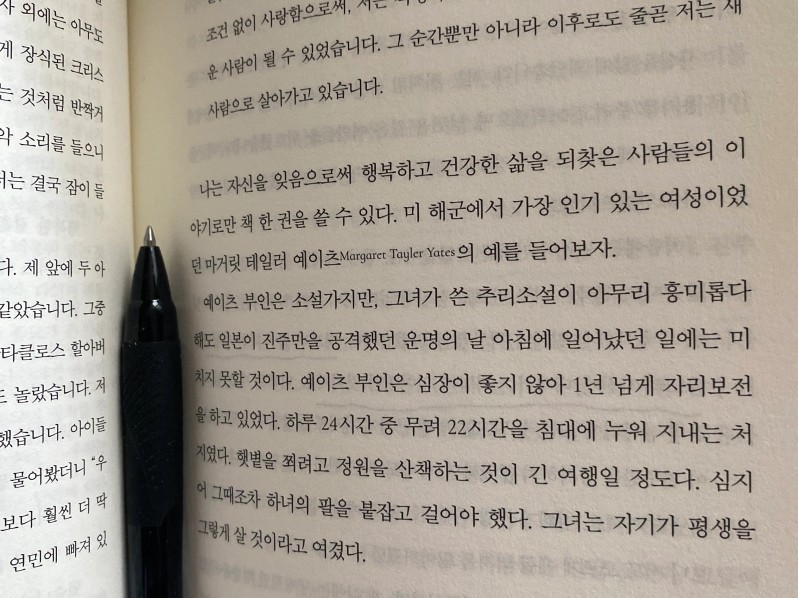 사 외에는 아무도
게 장식된 크리스
는 것처럼 반짝거
악 소리를 들으니
저는 결국 잠이 들
다. 제 앞에 두 아
같았습니다. 그중
타클로스 할아버
도 놀랐습니다. 저
했습니다. 아이들
물어봤더니 “우
보다 훨씬 더 딱
연민에 빠져 있
조건 없이 사랑함으로써, 저는
운 사람이 될 수 있었습니다. 그 순간뿐만 아니라 이후로도 줄곧 저는 새
사람으로 살아가고 있습니다.
나는 자신을 잊음으로써 행복하고 건강한 삶을 되찾은 사람들의 이
야기로만 책 한 권을 쓸 수 있다. 미 해군에서 가장 인기 있는 여성이었
던 마거릿 테일러 예이츠Margaret Tayler Yates의 예를 들어보자.
예이츠 부인은 소설가지만, 그녀가 쓴 추리소설이 아무리 흥미롭다
해도 일본이 진주만을 공격했던 운명의 날 아침에 일어났던 일에는 미
치지 못할 것이다. 예이츠 부인은 심장이 좋지 않아 1년 넘게 자리보전
을 하고 있었다. 하루 24시간 중 무려 22시간을 침대에 누워 지내는 처
지였다. 햇볕을 쬐려고 정원을 산책하는 것이 긴 여행일 정도다. 심지
어 그때조차 하녀의 팔을 붙잡고 걸어야 했다. 그녀는 자기가 평생을
그렇게 살 것이라고 여겼다.